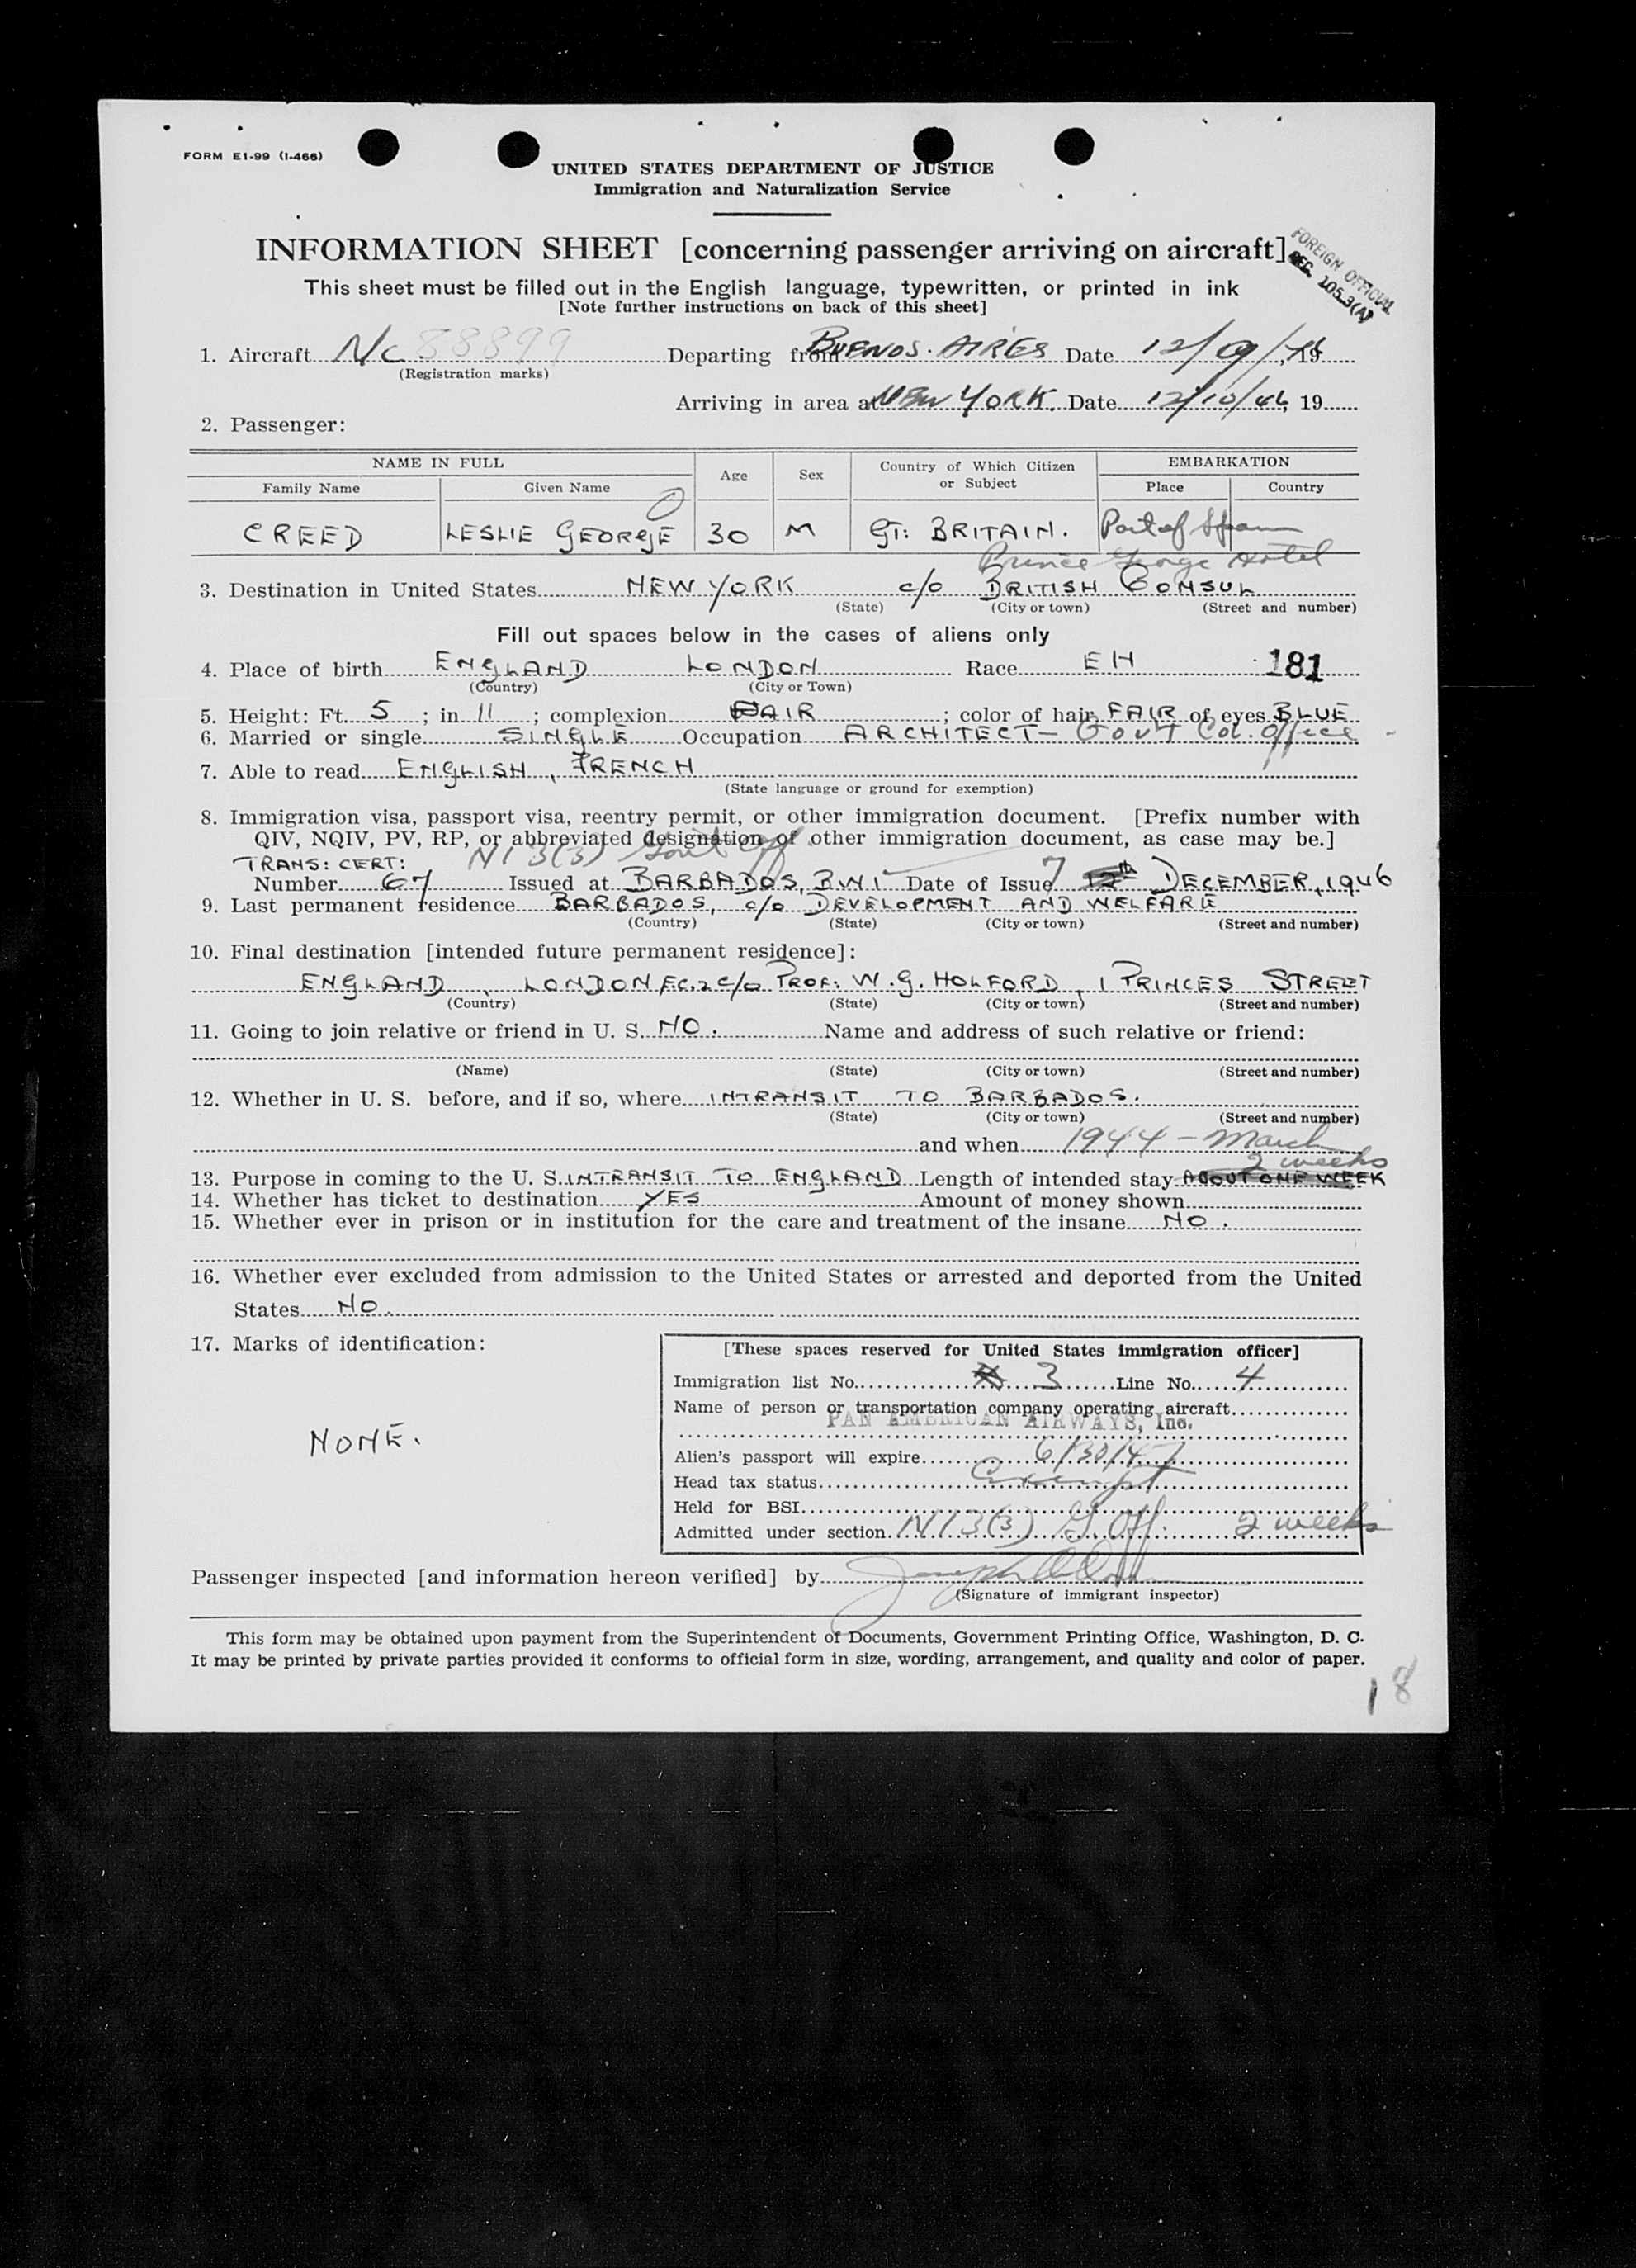 FORM E1-99 (I-466)
UNITED STATES DEPARTMENT OF JUSTICE
Immigration and Naturalization Service
INFORMATION SHEET [concerning passenger arriving on aircraft]
FOREIGN OFFICIAL
REG. 105.3(A)
This sheet must be filled out in the English language, typewritten, or printed in ink
[Note further instructions on back of this sheet]
1. Aircraft N/C 88899 Departing from BUENOS. AIRES Date 12/09/46, 19
(Registration marks)
Arriving in area at NEW YORK. Date 12/10/46, 19
2. Passenger:
NAME IN FULL Age Sex Country of Which Citizen or Subject EMBARKATION
Family Name Given Name Place Country
CREED LESLIE GEORGE 30 M GT: BRITAIN. Port of Spain
Prince George Hotel
3. Destination in United States NEW YORK c/o BRITISH CONSUL
(State) (City or town) (Street and number)
Fill out spaces below in the cases of aliens only
4. Place of birth ENGLAND LONDON Race EH 181
(Country) (City or Town)
5. Height: Ft. 5; in 11; complexion FAIR; color of hair FAIR of eyes BLUE
6. Married or single SINGLE Occupation ARCHITECT – Gov't Col. Office
7. Able to read ENGLISH, FRENCH
(State language or ground for exemption)
8. Immigration visa, passport visa, reentry permit, or other immigration document. [Prefix number with
QIV, NQIV, PV, RP, or abbreviated designation of other immigration document, as case may be.]
TRANS: CERT: N1 3(3) Govt Off
Number 67 Issued at BARBADOS, B.W.I. Date of Issue 7 DECEMBER, 1946
9. Last permanent residence BARBADOS, c/o DEVELOPMENT AND WELFARE
(Country) (State) (City or town) (Street and number)
10. Final destination [intended future permanent residence]:
ENGLAND, LONDON E.C.2 c/o PROF: W.G. HOLFORD, 1 PRINCES STREET
(Country) (State) (City or town) (Street and number)
11. Going to join relative or friend in U. S. NO. Name and address of such relative or friend:
(Name) (State) (City or town) (Street and number)
12. Whether in U. S. before, and if so, where INTRANSIT TO BARBADOS.
(State) (City or town) (Street and number)
and when 1944 – March
2 weeks
13. Purpose in coming to the U. S. INTRANSIT TO ENGLAND Length of intended stay ABOUT ONE WEEK
14. Whether has ticket to destination YES Amount of money shown
15. Whether ever in prison or in institution for the care and treatment of the insane NO.
16. Whether ever excluded from admission to the United States or arrested and deported from the United
States NO.
17. Marks of identification:
NONE.
[These spaces reserved for United States immigration officer]
Immigration list No. 3 Line No. 4
Name of person or transportation company operating aircraft
PAN AMERICAN AIRWAYS, Inc.
Alien's passport will expire 6/30/47
Head tax status Exempt
Held for BSI
Admitted under section N1 3(3) G Off. 2 weeks
Passenger inspected [and information hereon verified] by
(Signature of immigrant inspector)
This form may be obtained upon payment from the Superintendent of Documents, Government Printing Office, Washington, D. C.
It may be printed by private parties provided it conforms to official form in size, wording, arrangement, and quality and color of paper.
18